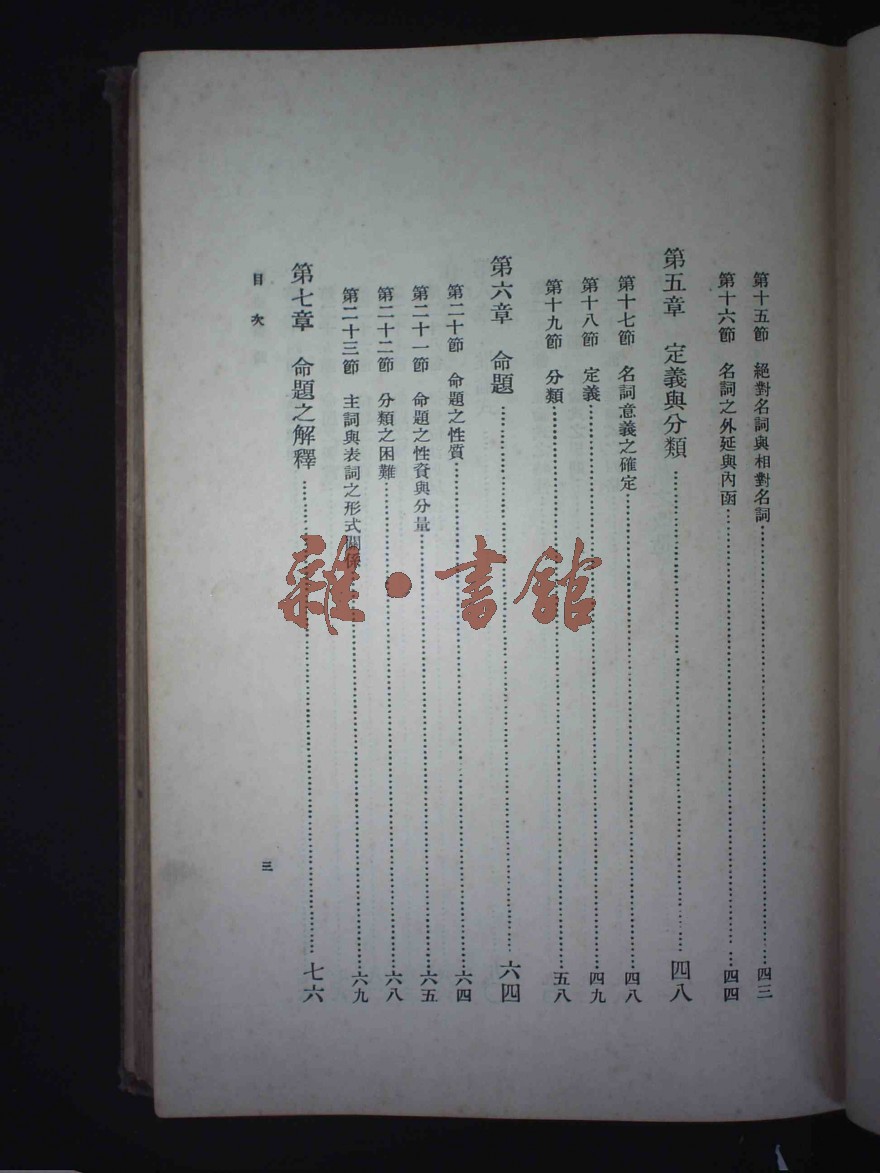 第十五節 絕對名詞與相對名詞……四三
第十六節 名詞之外延與內函……四四
第五章 定義與分類……四八
第十七節 名詞意義之確定……四八
第十八節 定義……四九
第十九節 分類……五八
第六章 命題……六四
第二十節 命題之性質……六四
第二十一節 命題之性資與分量……六五
第二十二節 分類之困難……六八
第二十三節 主詞與表詞之形式關係……六九
第七章 命題之解釋……七六
目次
三
雜·書館